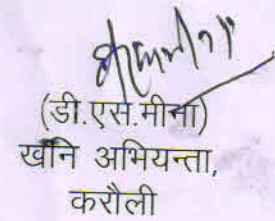 (डी.एस.मीना)
खनि अभियन्ता,
करौली